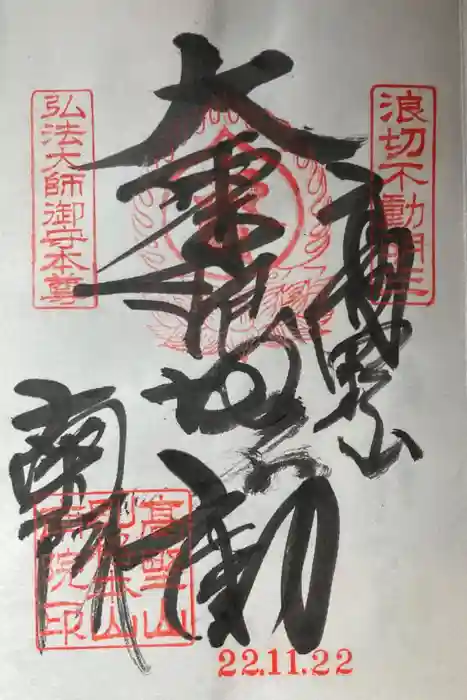 浪切不動明王
高野山
大聖浪切不動
弘法大師御守本尊
南院
高野山
別格本山
南院印
22.11.22